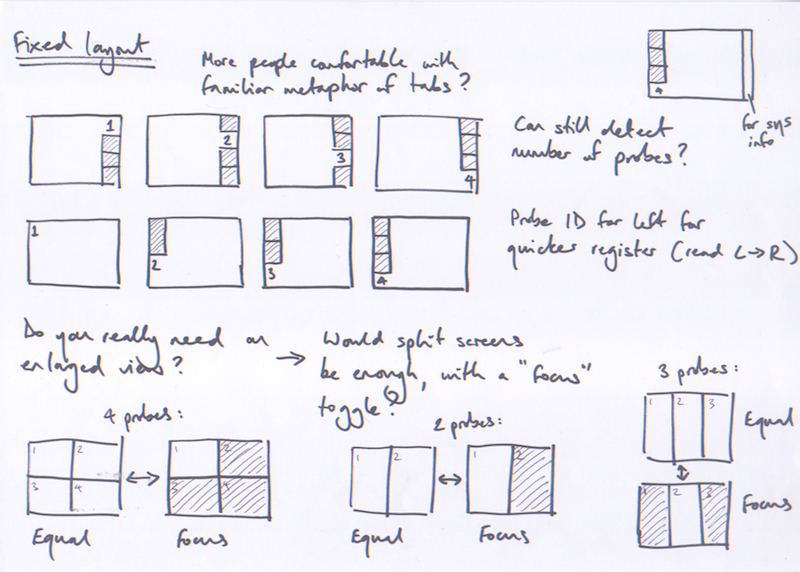 Fixed layout
More people comfortable with
familiar metaphor of tabs?
4
for sys
info
1
2
3
4
Can still detect
number of probes?
1
2
3
4
Probe ID far left for
quicker register (read L→R)
Do you really need an
enlarged view?
→ Would split screens
be enough, with a "focus"
toggle?
4 probes:
1 2
3 4
Equal
1 2
3 4
Focus
2 probes:
1 2
Equal
1 2
Focus
3 probes:
1 2 3
Equal
1 2 3
Focus